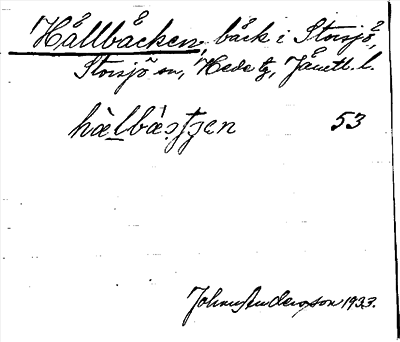 Hållbäcken, bäck i Storsjö,
Storsjö sn, Hede tg, Jämtl. l.
hàlbàstjen 53
John Anderson 1933.